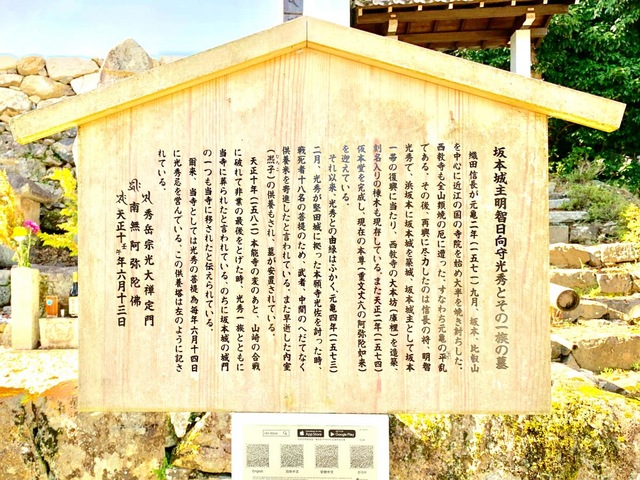 坂本城主明智日向守光秀とその一族の墓
織田信長が元亀二年(一五七一)九月、坂本、比叡山
を中心に近江の国の寺院を始め大半を焼き討ちした。
西教寺も全山類焼の厄に遭った。すなわち元亀の平乱
である。その後、再興に尽力したのは信長の将、明智
光秀で、浜坂本に坂本城を築城、坂本城主として坂本
一帯の復興に当たり、西教寺の大本坊(庫裡)を造築、
刻名入りの棟木も現存している。また天正二年(一五七四)
仮本堂を完成し、現在の本尊(重文丈六の阿弥陀如来)
を迎えている。
それ以来、光秀との由緒はふかく、元亀四年(一五七三)
二月、光秀が堅田城に拠った本願寺光佐を討った時、
戦死者十八名の菩提のため、武者、中間のへだてなく
供養米を寄進したと言われている。また早逝した内室
(熈子)の供養もされ、墓が安置されている。
天正十年(一五八二)本能寺の変のあと、山崎の合戦
に破れて非業の最後をとげた時、光秀一族とともに
当寺に葬られたと言われている。のちに坂本城の城門
の一つも当寺に移されたと伝えられている。
爾来、当寺としては光秀の菩提の為毎年六月十四日
に光秀忌を営んでいる。この供養塔は左のように記さ
れている。
秀岳宗光大禅定門
南無阿弥陀佛
天正十年六月十三日
App Store
Google Play
English
한국어